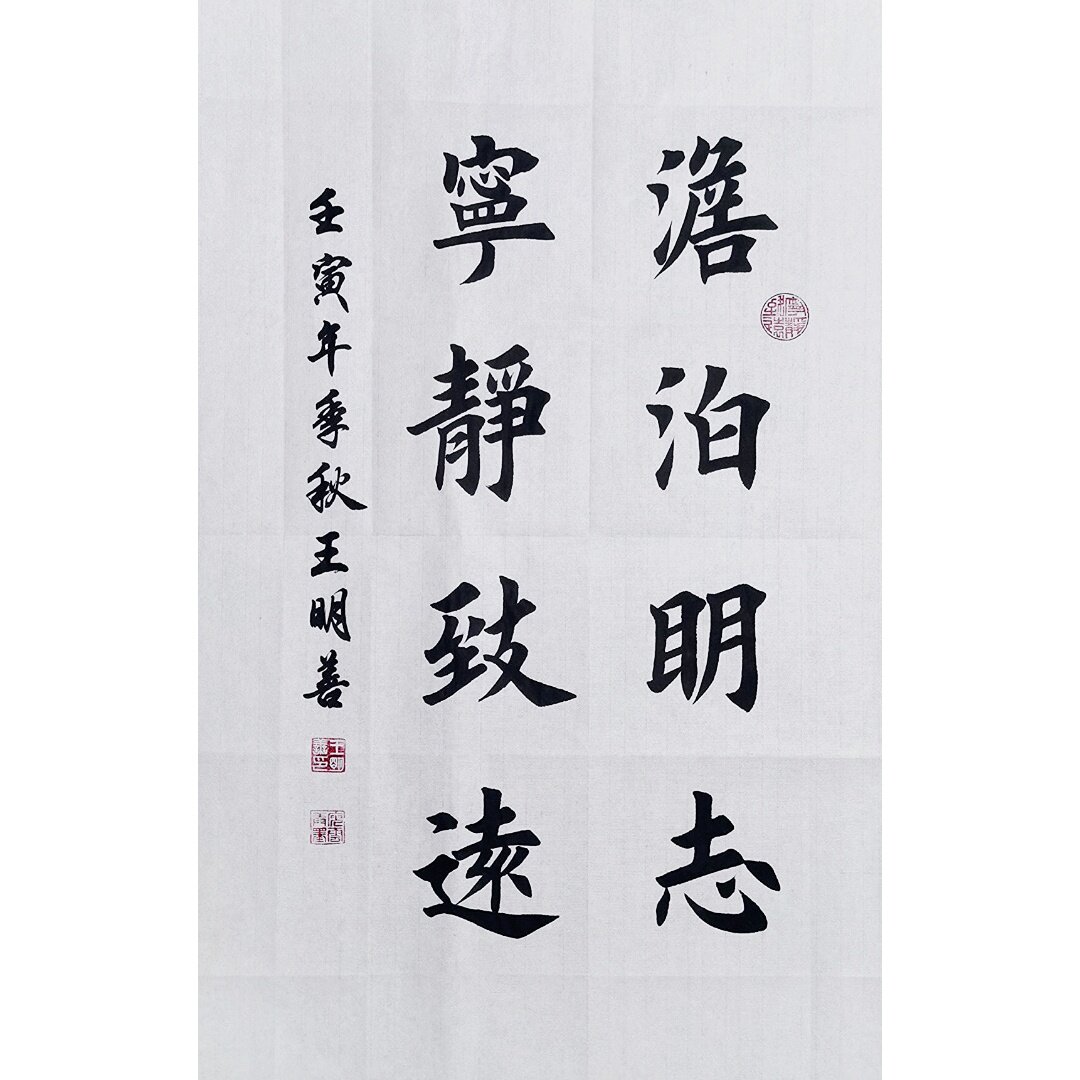 澹泊明志
寧靜致遠
壬寅年季秋王明善